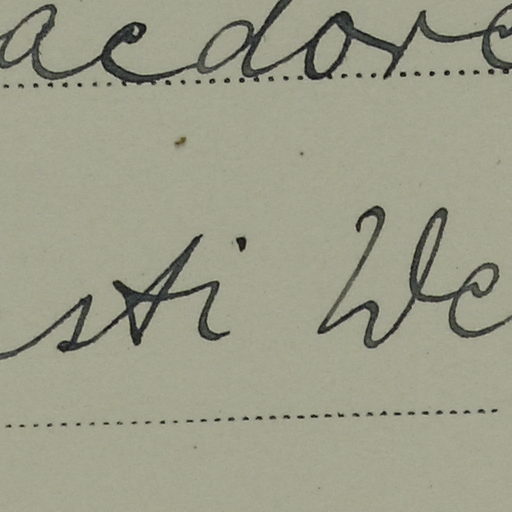 aedore
sti We